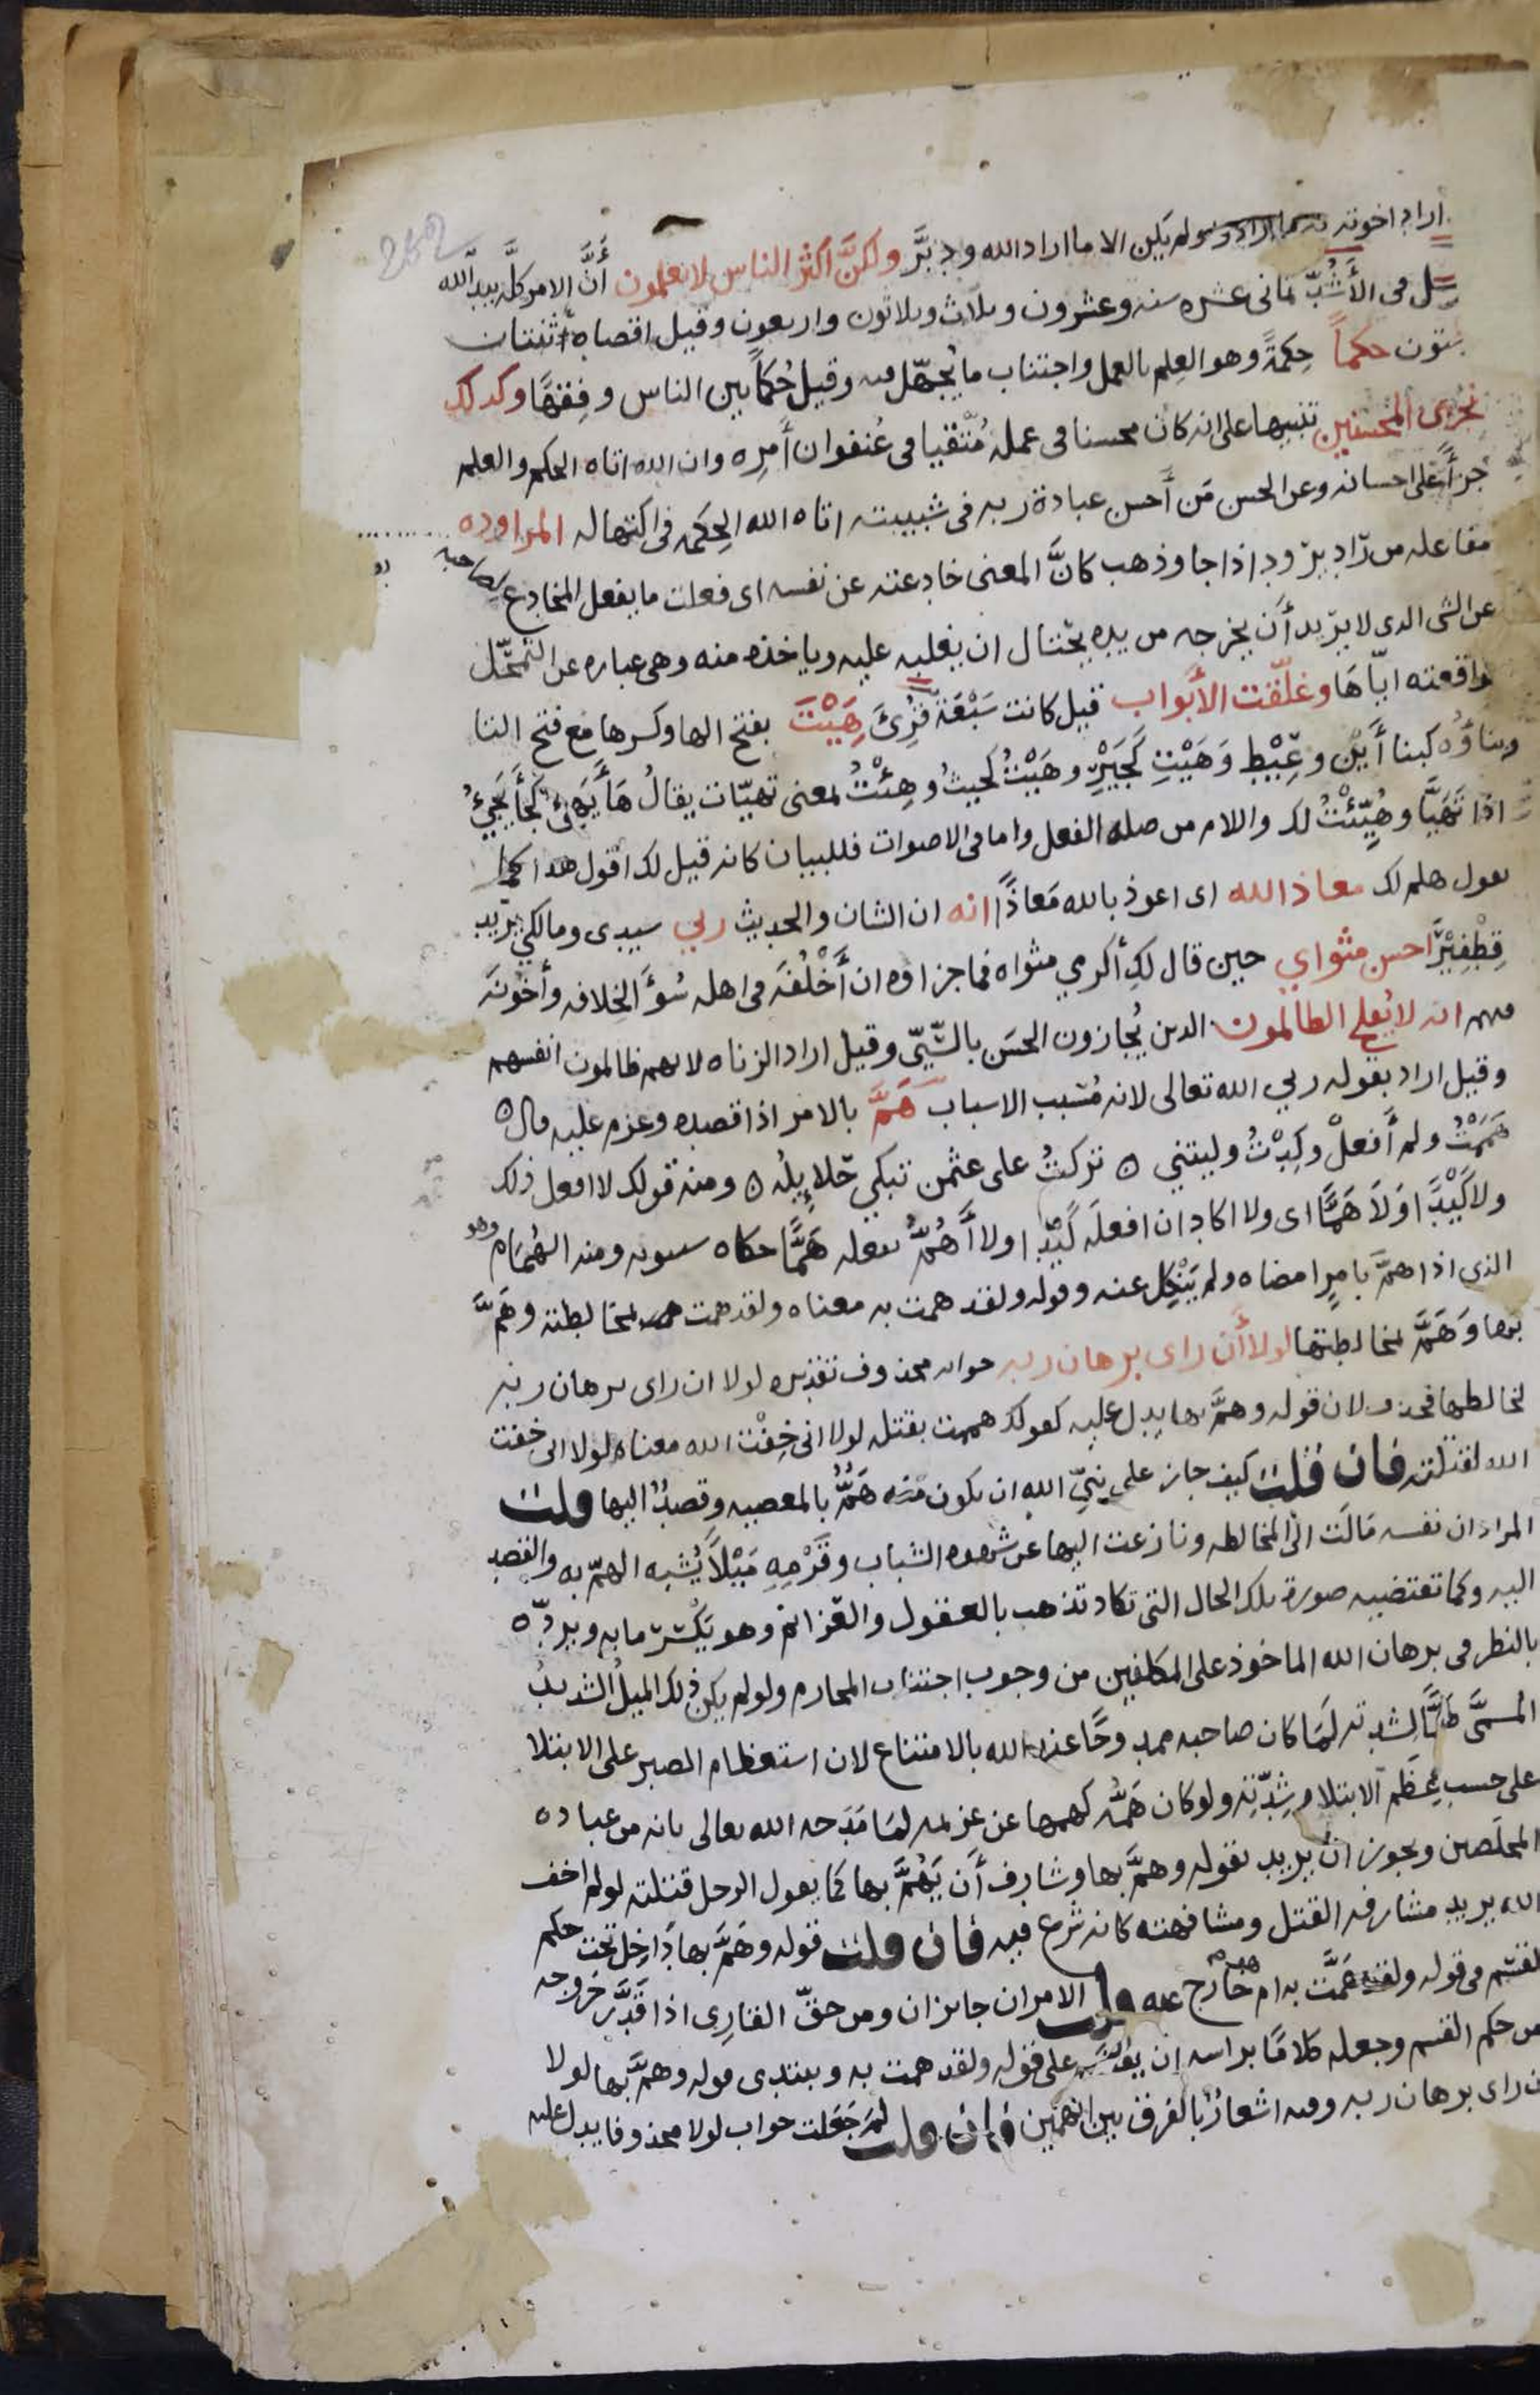 اراد اخوته به ما اراد ولم يكن الا ما اراد الله ودبَّر ولكنَّ اكثر الناس لا يعلمون أنَّ الامر كلَّه بيد الله
قيل فى الأَشُدّ ثمانى عشره سنه وعشرون وثلاث وثلاثون واربعون وقيل اقصاه اثنتان
وستون حكماً حِكمةً وهو العِلم بالعمل واجتناب ما يُجهّل فيه وقيل حُكماً بين الناس وفِقهًا وكذلك
نجزى المحسنين تنبيها على انه كان محسنا فى عمله مُتّقيا فى عُنفوان أَمرِه وان الله اتاه الحكم والعلم
جزأً على احسانه وعن الحسن مَن أَحسن عبادة ربه فى شبيبته اتاه الله الحِكمه فى اكتهاله المراوده
مفاعله من رَاد يرود اذا جا وذهب كانَّ المعنى خادعته عن نفسه اى فعلت ما يفعل المخادع لصاحبه
عن الشى الدى لا يريد أَن يخرجه من يده يحتال ان يغلبه عليه وياخذه منه وهى عباره عن التمحّل
لمواقعته ايّاهَا وغلّقت الأبواب قيل كانت سَبْعَة قُرِئَ هَِيْتَ بفتح الها وكسرها مع فتح التا
وبناؤه كبنا أَيْنَ وعِيْطِ وَهَيْتِ كَجَيْرِ وهَيْتُ كَحيثُ وهِئْتُ بمعنى تهيّات يقالُ هَأَ يَهِئُ كجَأَ يَجِئُ
اذا تَهَيَّأ وهُيِّئْتُ لك واللام من صله الفعل واما فى الاصوات فللبيان كانه قيل لك اقول هذا كما
تقول هلم لك معاذ الله اى اعوذ بالله مَعاذًا انه ان الشان والحديث ربي سيدى ومالكي يريد
قِطْفِيْرَ احسن مثواي حين قال لكِ أكرمي مثواه فما جزاوه ان أَخْلُفَه فى اهله سُوءَ الخِلافه وأخُونَه
فيهم انه لا يُفلح الظالمون الدين يُجازون الحسَن بالسّيّئ وقيل اراد الزناه لانهم ظالمون انفسهم
وقيل اراد بقوله ربي الله تعالى لانه مُسَبب الاسباب هَمَّ بالامر اذا قصده وعزم عليه قال ٥
هَمَمْتُ ولم أَفعلْ وكِدْتُ وليتني ٥ تركتُ على عثمن تبكي حَلايِلُه ٥ ومنه قولك لا افعل ذلك
ولا كَيْدًا وَلاَ هَمًّا اى ولا اكاد ان افعلَه كَيْدًا ولا أَهُمُّ بفعله هَمًّا حكاه سيبويه ومنه الهُمَام وهو
الذى اذا همَّ بامرٍ امضاه ولم يَنْكِل عنه وقوله ولقد همت به معناه ولقد همت بمخالطته وهَمَّ
بها وَهَمَّ بمخالطتها لولا أَن راى برهان ربه جوابه محذوف تقديره لولا ان راى برهان ربه
لخالطها فحذف لان قوله وهمَّ بها يدل عليه كقولك هممت بقتله لولا انى خِفْت الله معناه لولا انى خِفت
الله لقتلته فان قلت كيف جاز على نبيِّ الله ان يكون منه هَمٌّ بالمعصيه وقصدٌ اليها قلت
المراد ان نفسه مَالَت الى المخالطه ونازعت اليها عن شهوه الشباب وقَرَمِهِ مَيْلاً يُشبه الهمّ به والقصد
اليه وكما تقتضيه صورة تلك الحال التى تكاد تذهب بالعقول والعَزائم وهو يَكْسر ما به ويردّه
بالنظر فى برهان الله الماخوذ على المكلفين من وجوب اجتناب المحارم ولو لم يكن ذلك الميلُ الشديدُ
المسمَّى هَمًّا لشدته لَمَا كان صاحبه ممدوحًا عند الله بالامتناع لان استعظام الصبر على الابتلا
على حسب عِظَم الابتلا وشِدّتِه ولو كان هَمُّه كهمها عن عزيمه لمَا مَدَحه الله تعالى بانه من عباده
المخلَصين ويجوز ان يريد بقوله وهمَّ بها وشارف أَن يَهُمَّ بها كما يقول الرجل قتلته لو لم اخف
الله يريد مشارفه القتل ومشافهته كانه شرع فيه فان قلت قوله وهَمَّ بها دَاخل تحت حكم
القسَم فى قوله ولقد هَمَّت به ام خارج عنه قلت الامران جايزان ومن حقّ القارِى اذا قَدَّر خروجه
من حكم القسم وجعله كلامًا براسه ان يقف على قوله ولقد همت به ويبتدى قوله وهمَّ بها لولا
ان راى برهان ربه وفيه اشعارٌ بالفرق بين الهمين فان قلت لمَ جَعَلت جواب لولا محذوفا يدل عليه